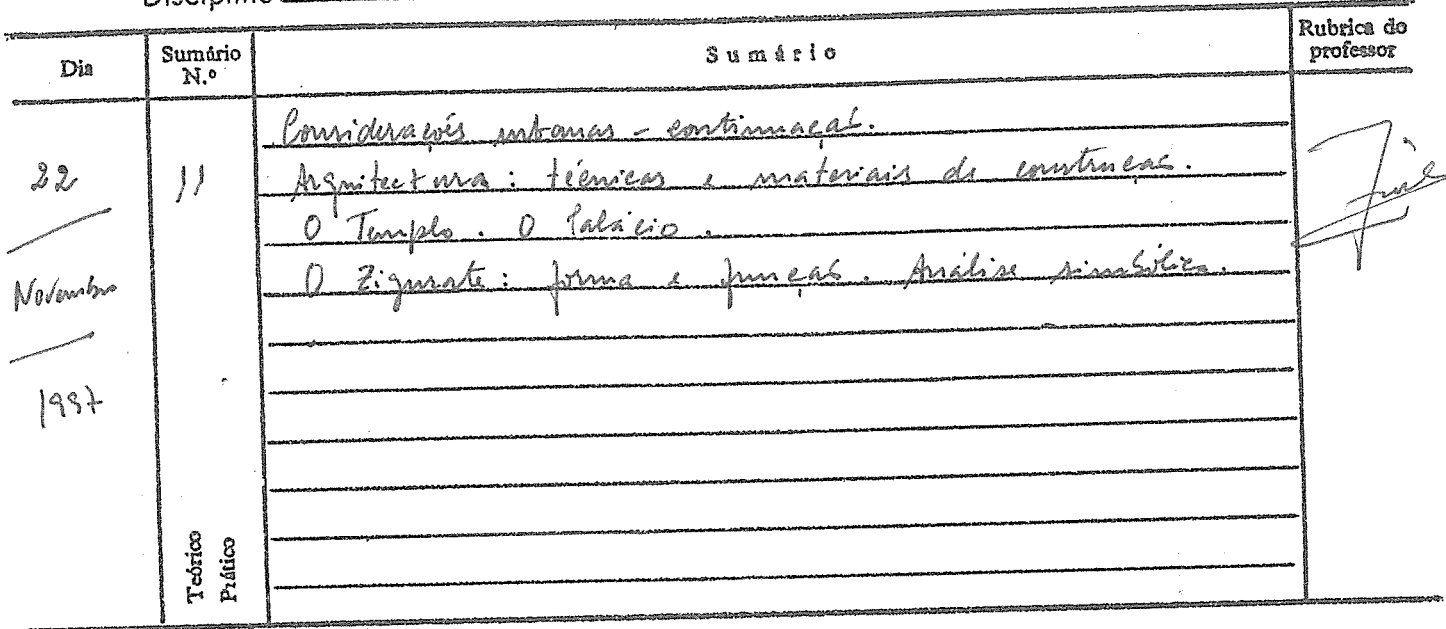 Disciplina
Dia
Sumário N.º
Sumário
Rubrica do professor
22
Novembro
1997
11
Considerações urbanas - continuação.
Arquitectura: técnicas e materiais de construção.
O Templo. O Palácio.
O Zigurate: forma e função. Análise simbólica.
Teórico
Prático